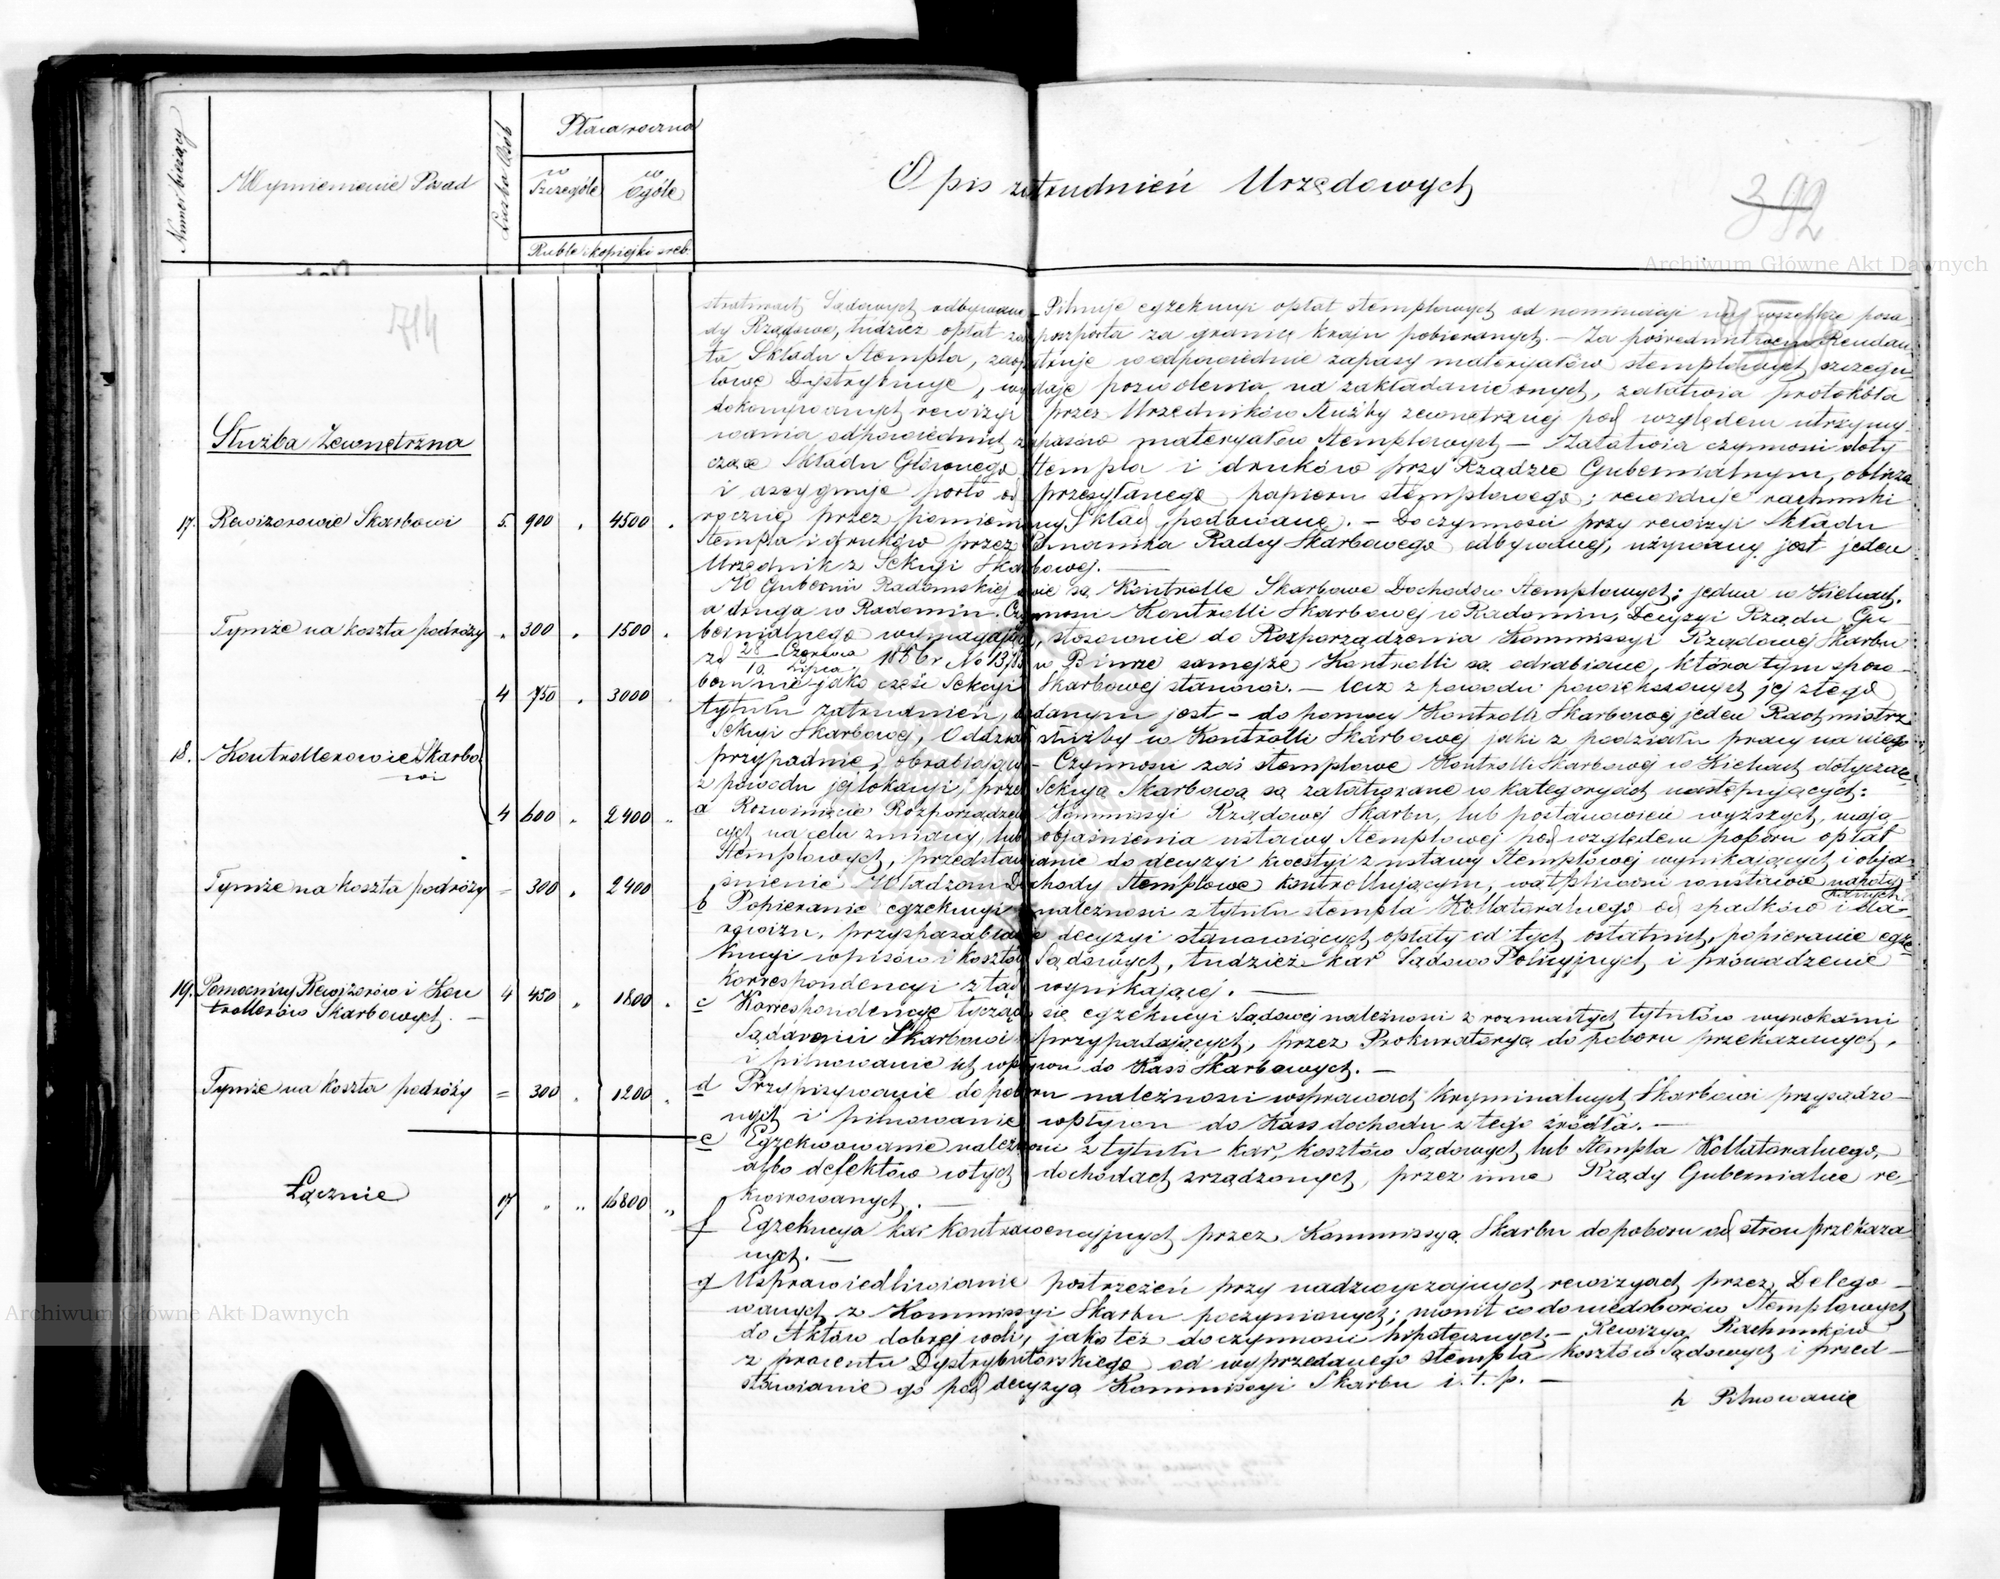 Numer bieżący
Wymienienie Posad
Liczba Osób
Płaca roczna
w Szczególe
w Ogóle
Ruble i kopiejki sreb.
Opis zatrudnień Urzędowych
392
714
Służba Zewnętrzna
17. Rewizorowie Skarbowi 5 900 „ 4500 „
Tymże na koszta podróży „ 300 „ 1500 „
4 750 „ 3000 „
18. Kontrollerowie Skarbo
wi
4 600 „ 2400 „
Tymże na koszta podróży = 300 „ 2400
19. Pomocnicy Rewizorów i Kon
trollerów Skarbowych. — 4 450 „ 1800 „
Tymże na koszta podróży = 300 „ 1200 „
Łącznie 17 „ „ 16800 „
stratwach Sądowych odbywane — Pilnuje egzekucyi opłat stemplowych od nominacyi na wszelkie posa-
dy Rządowe, tudzież opłat za paszporta za granicę kraju pobieranych. — Za pośrednictwem Rendan-
ta Składu Stempla, zaopatruje w odpowiednie zapasy materyałów stemplowych szczegó-
łowe Dystrybucye, wydaje pozwolenia na zakładanie onych, załatwia protokóła
dokonywanych rewizyi przez Urzędników Służby zewnętrznej pod względem utrzymy
wania odpowiednich zapasów materyałów Stemplowych — Załatwia czynności doty
czące Składu Głównego Stempla i druków przy Rządzie Gubernialnym, oblicza
i assygnuje porto od przesyłanego papieru stemplowego; rewiduje rachunki
roczne przez pomieniony Skład podawane. — Do czynności przy rewizyi Składu
Stempla i druków przez Członka Radcy Skarbowego odbywanej, używany jest jeden
Urzędnik z Sekcyi Skarbowej. —
W Gubernii Radomskiej dwie są Kontrolle Skarbowe Dochodów Stemplowych: jedna w Kielcach,
a druga w Radomiu. Czynności Kontrolli Skarbowej w Radomiu, Decyzyi Rządu Gu-
bernialnego wymagające, stosownie do Rozporządzenia Kommissyi Rządowej Skarbu
z d. 28 Czerwca / 10 Lipca w Biurze samejże Kontrolli są odrabiane, która tym sposo-
bem niejako część Sekcyi Skarbowej stanowi. — lecz z powodu powiększonych jej z tego
tytułu zatrudnień, dodanym jest — do pomocy Kontrolli Skarbowej jeden Rachmistrz
Sekcyi Skarbowej, Oddział służby w Kontrolli Skarbowej jaki z podziału pracy na niego
przypadnie, obrabiający — Czynności zaś stemplowe Kontrolli Skarbowej w Kielcach dotyczące
z powodu jej lokacyi, przez Sekcyą Skarbową są załatwiane w kategoryach następujących:
a Rozwinięcie Rozporządzeń Kommissyi Rządowej Skarbu, lub postanowień wyższych, mają-
cych na celu zmiany lub objaśnienia ustawy Stemplowej pod względem poboru opłat
Stemplowych, przedstawianie do decyzyi kwestyi z ustawy Stemplowej wynikających i obja-
śnienie Władzom Dochody Stemplowe kontrollującym, wątpliwości w ustawie napoty
kanych
b Popieranie egzekucyi należności z tytułu stempla Kollateralnego od spadków i da-
rowizn, przysposabianie decyzyi stanowiących opłaty od tych ostatnich, popieranie egze-
kucyi wpisów i kosztów Sądowych, tudzież kar Sądowo Policyjnych i prowadzenie
korrespondencyi z tąd wynikającej. —
c Korrespondencye tyczące się egzekucyi Sądowej należności z rozmaitych tytułów wyrokami
Sądowemi Skarbowi przypadających, przez Prokuratoryą do poboru przekazanych,
i pilnowanie ich wpływu do Kass Skarbowych. —
d Przypisywanie do poboru należności w sprawach kryminalnych Skarbowi przysądzo-
nych i pilnowanie wpływu do Kass dochodu z tego źródła. —
e Egzekwowanie należności z tytułu kar, kosztów Sądowych lub Stempla Kollateralnego,
albo defektów w tych dochodach zrządzonych, przez inne Rządy Gubernialne re-
kwirowanych. —
f Egzekucya kar kontrawencyjnych przez Kommissyą Skarbu do poboru od stron przekaza
nych. —
g Usprawiedliwianie postrzeżeń przy nadzwyczajnych rewizyach przez Delego-
wanych z Kommissyi Skarbu poczynionych; monit co do niedoborów Stemplowych
do Aktów dobrej woli, jakoteż do czynności hipotecznych. — Rewizya Rachunków
z procentu Dystrybutorskiego od wyprzedanego stempla kosztów Sądowych i przed-
stawianie go pod decyzyą Kommissyi Skarbu i. t. p. —
h Pilnowanie
Archiwum Główne Akt Dawnych
Archiwum Główne Akt Dawnych